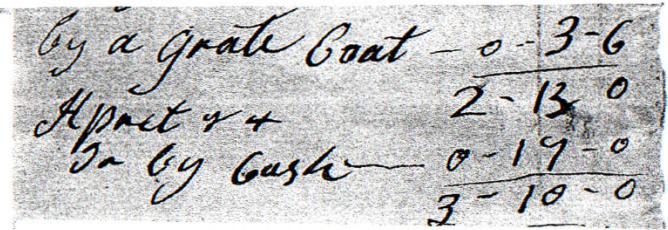 by a grate Coat - 0 - 3 - 6
2 - 13 0
Apriel
by Cash - 0 - 17 - 0
3 - 10 - 0